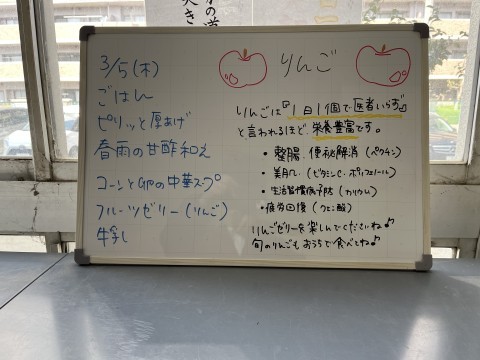 の道
大き
3/5(木)
ごはん
ピリッと厚あげ
春雨の甘酢和え
コーンと卵の中華スープ
フルーツゼリー(りんご)
牛乳
りんご
りんごは『1日1個で医者いらず』
と言われるほど栄養豊富です。
・整腸、便秘解消(ペクチン)
・美肌(ビタミンC、ポリフェノール)
・生活習慣病予防(カリウム)
・疲労回復(クエン酸)
りんごゼリーを楽しんでくださいね♪
旬のりんごもおうちで食べてね♪